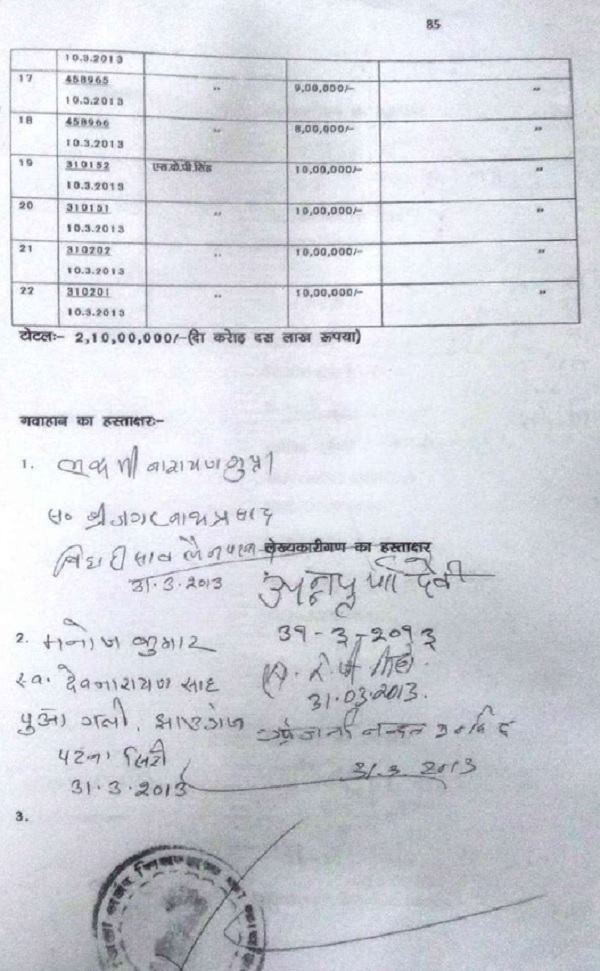 85
10.3.2013
17 458965 ,, 9,00,000/- ,,
10.3.2013
18 458966 ,, 8,00,000/- ,,
10.3.2013
19 310152 एस.के.पी.सिंह 10,00,000/- ,,
10.3.2013
20 310151 ,, 10,00,000/- ,,
10.3.2013
21 310202 ,, 10,00,000/- ,,
10.3.2013
22 310201 ,, 10,00,000/- ,,
10.3.2013
टोटलः- 2,10,00,000/-(दो करोड़ दस लाख रूपया)
गवाहान का हस्ताक्षरः-
1. लक्ष्मी नारायण गुप्ता
स० श्री जगरनाथ प्रसाद
लेख्यकारीगण का हस्ताक्षर
31.3.2013
अन्नपूर्णा देवी
31-3-2013
2. मनोज कुमार
स्व. देवनारायण साह
31.03.2013.
गली, झाउगंज
पटना सिटी
31.3.2013
31.3.2013
3.